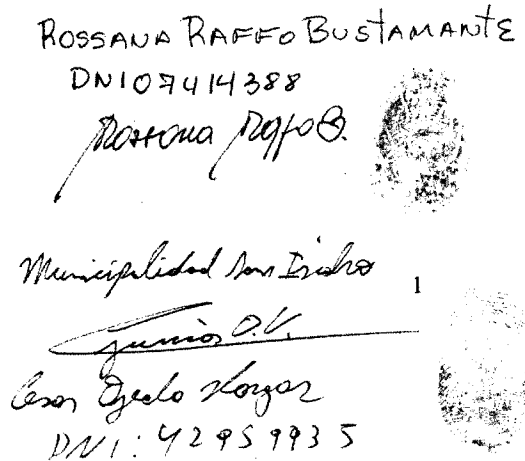 ROSSANA RAFFO BUSTAMANTE
DNI 07414388
Rossana Raffo B.
Municipalidad San Isidro
1
Junior O.V.
Cesar Ojeda
DNI: 42959935